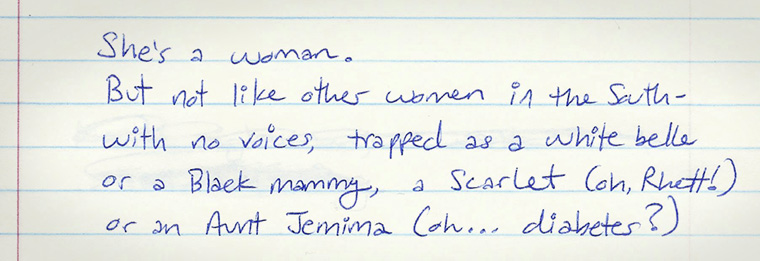 She's a woman.
But not like other women in the South-
with no voices, trapped as a white belle
or a Black mammy, a Scarlet (oh, Rhett!)
or an Aunt Jemima (oh... diabetes?)